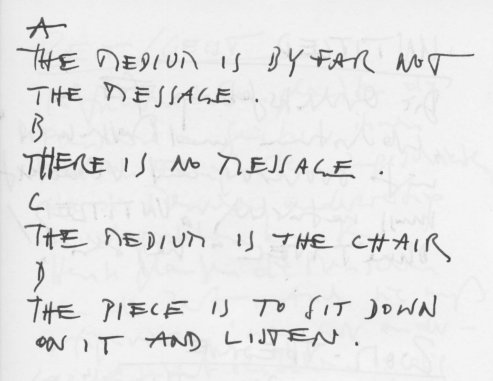 A
THE MEDIUM IS BY FAR NOT
THE MESSAGE.
B
THERE IS NO MESSAGE.
C
THE MEDIUM IS THE CHAIR
D
THE PIECE IS TO SIT DOWN
ON IT AND LISTEN.